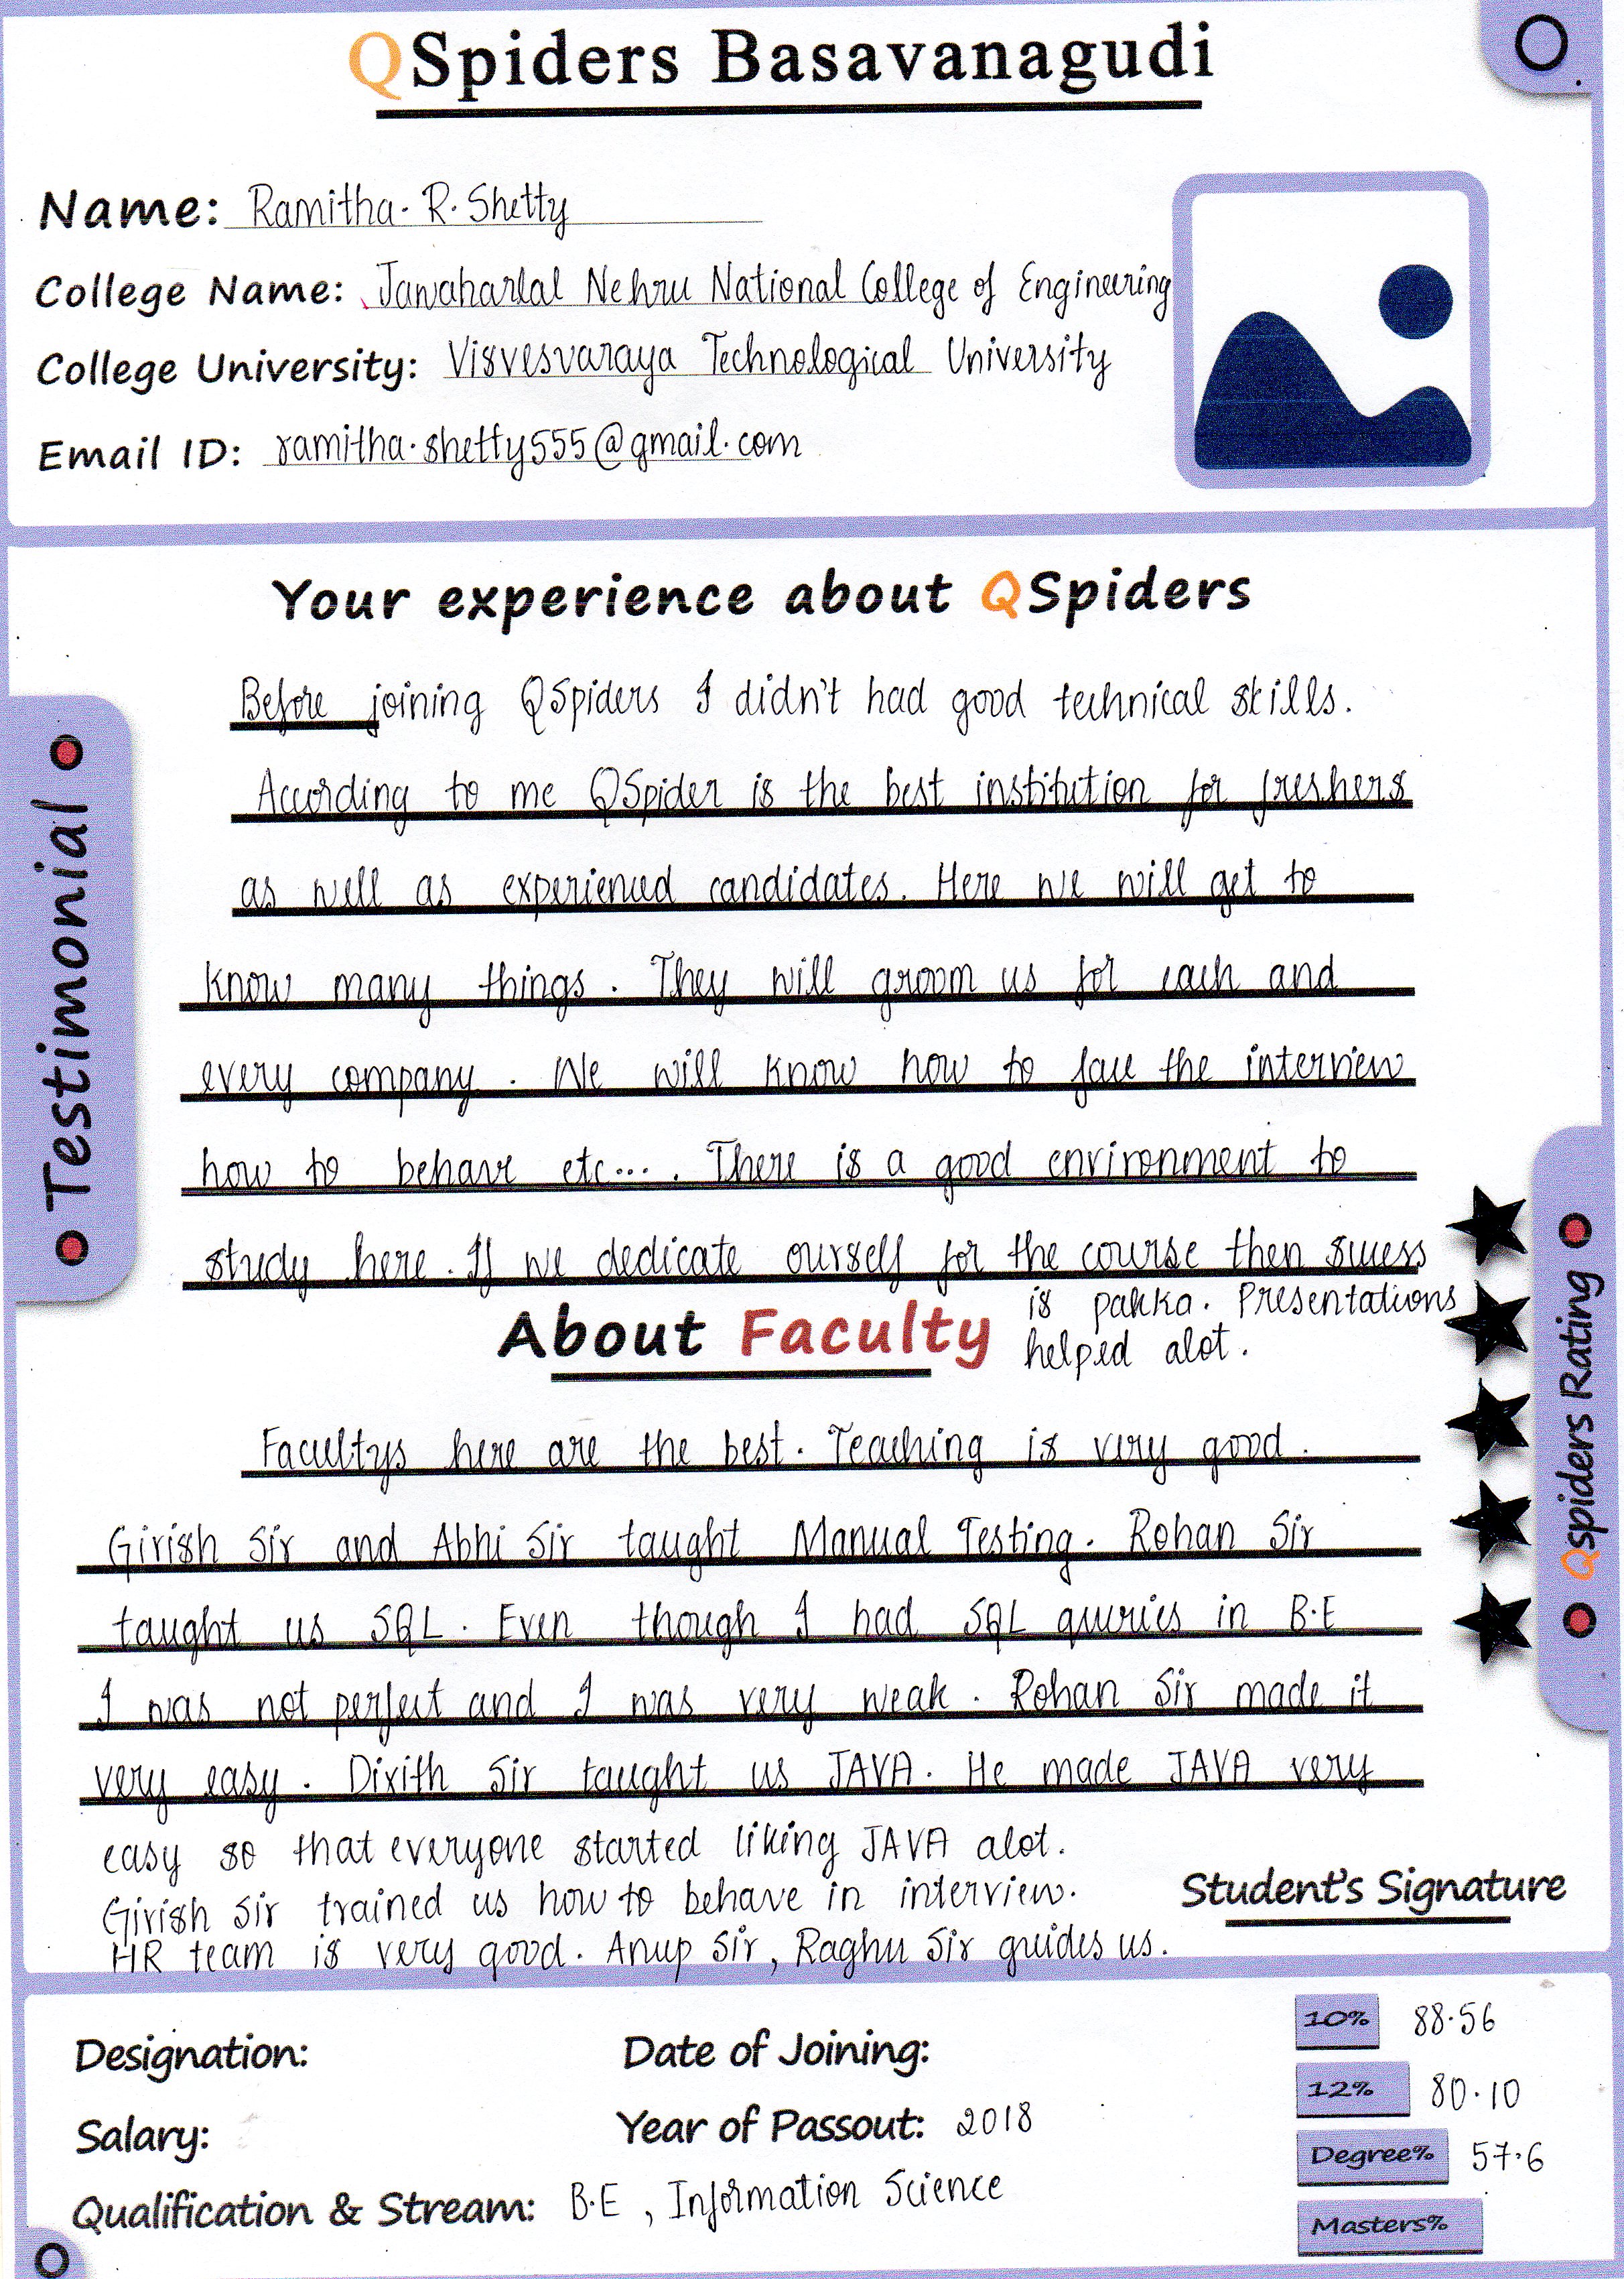 QSpiders Basavanagudi
Name: Ramitha. R. Shetty
College Name: Jawaharlal Nehru National College of Engineering
College University: Visvesvaraya Technological University
Email ID: ramitha.shetty555@gmail.com
Your experience about QSpiders
Before joining QSpiders I didn't had good technical skills.
According to me QSpider is the best institution for freshers
as well as experienced candidates. Here we will get to
know many things. They will groom us for each and
every company. We will know how to face the interview
how to behave etc.... There is a good environment to
study here. If we dedicate ourself for the course then success
is pakka. Presentations
helped alot.
Testimonial
Qspiders Rating
About Faculty
Facultys here are the best. Teaching is very good.
Girish Sir and Abhi Sir taught Manual Testing. Rohan Sir
taught us SQL. Even though I had SQL queries in B.E
I was not perfect and I was very weak. Rohan Sir made it
very easy. Dixith Sir taught us JAVA. He made JAVA very
easy so that everyone started liking JAVA alot.
Girish Sir trained us how to behave in interview.
HR team is very good. Anup Sir, Raghu Sir guides us.
Student's Signature
Designation:
Date of Joining:
Salary:
Year of Passout: 2018
Qualification & Stream: B.E, Information Science
10% 88.56
12% 80.10
Degree% 57.6
Masters%